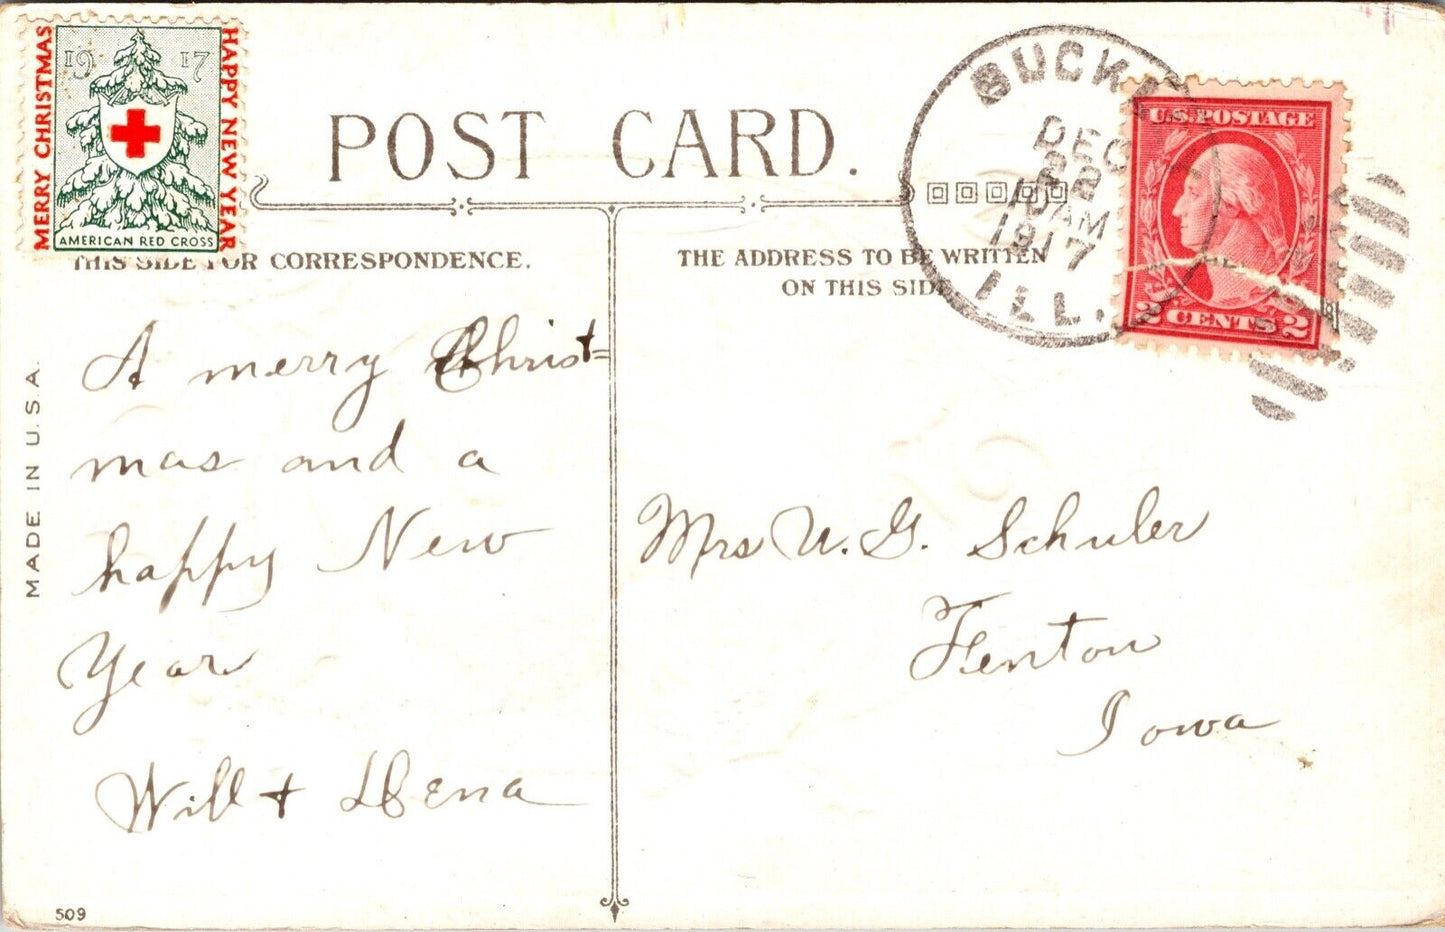 MERRY CHRISTMAS
1917
HAPPY NEW YEAR
AMERICAN RED CROSS
POST CARD.
THIS SIDE FOR CORRESPONDENCE.
THE ADDRESS TO BE WRITTEN
ON THIS SIDE
DEC
22
AM
1917
ILL.
U.S. POSTAGE
2 CENTS 2
MADE IN U.S.A.
A merry Christ=
mas and a
happy New
Year
Will +
Mrs U. G. Schuler
Fenton
Iowa
509